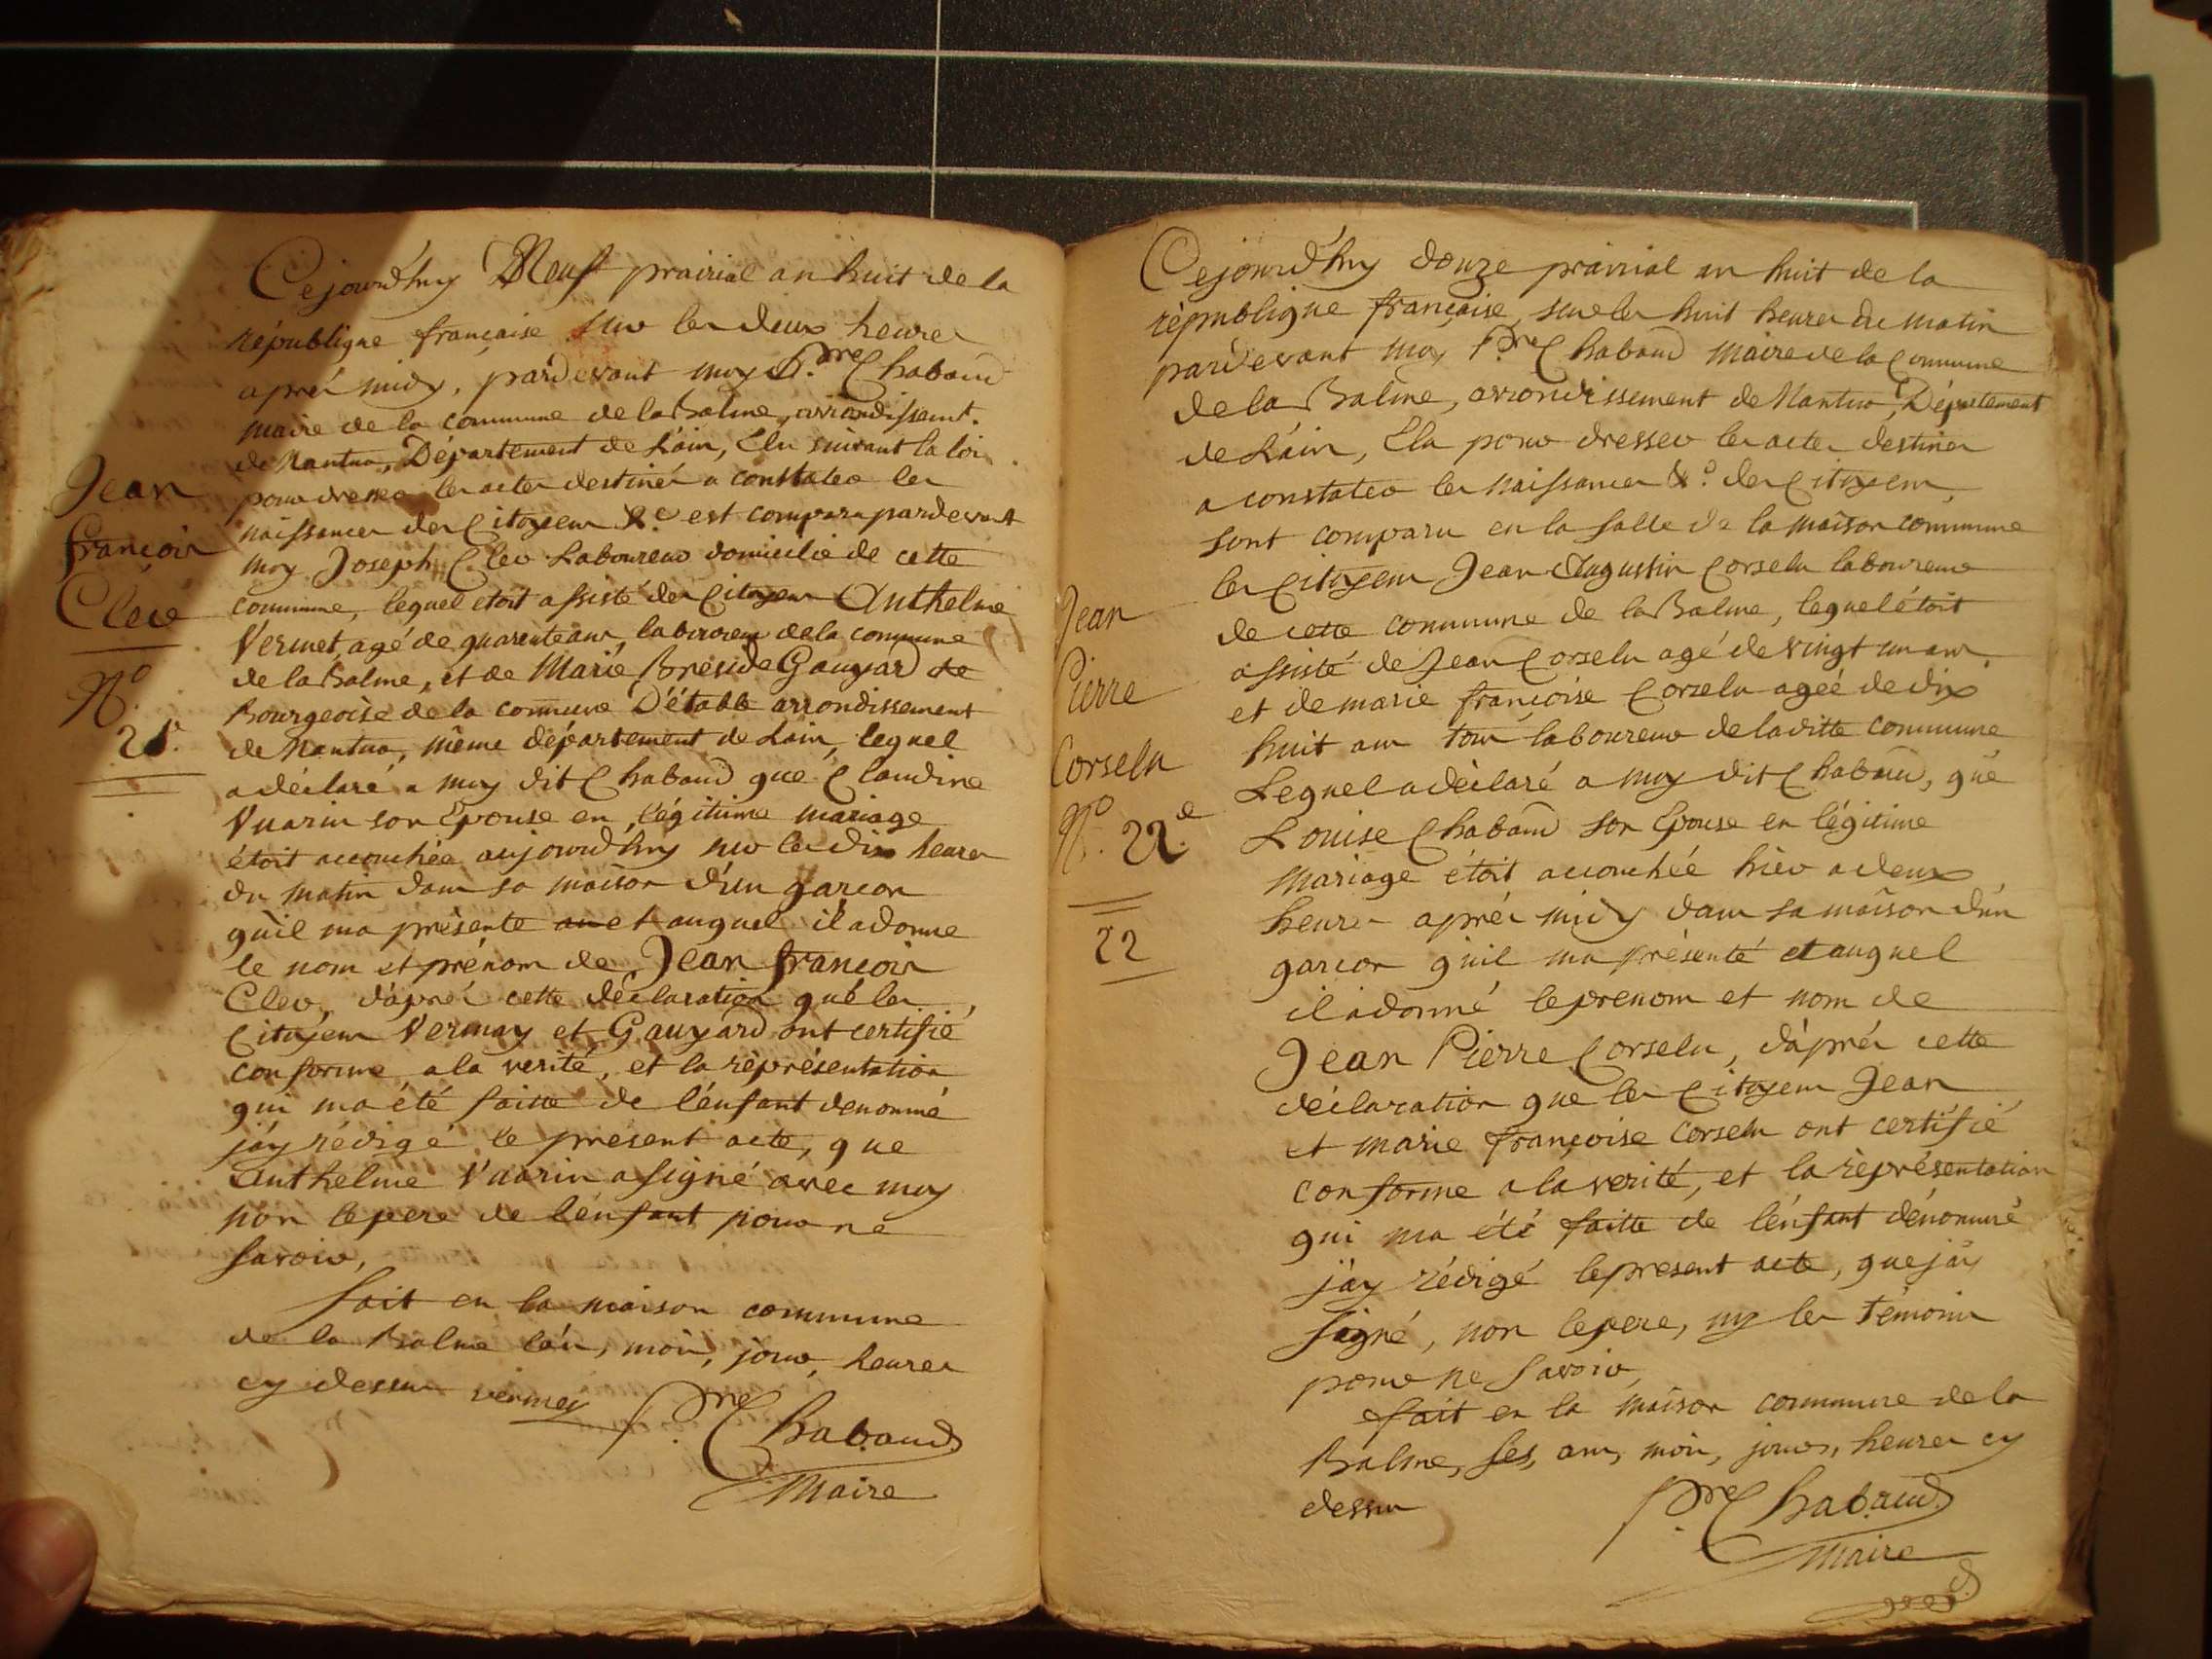 Jean
françois
Cleo
N.o
21.
Cejourd'huy Neuf prairial an huit de la
république française sur les deux heures
aprés midy, pardevant moy P.re Chabaud
maire de la commune de la Balme, arrondissemt.
de Nantua, Département de L'ain, Elu suivant la loi
pour dresser les actes destinés a constater les
naissances des Citoyens &c est comparu pardevant
moy Joseph Cleo Laboureur domicilié de cette
commune, lequel étoit assisté des Citoyens Anthelme
Vermet, agé de quarente ans, laboureur de la commune
de la Balme, et de Marie Gauyard
Bourgeoise de la commune D'étable arrondissement
de Nantua, même département de Lain, lequel
a déclaré a moy dit Chabaud que Claudine
Vuarin son Epouse en légitime mariage
étoit accouchée aujourd'huy sur les dix heures
du matin dans sa maison d'un garcon
qu'il ma présente et auquel il a donne
le nom et prénom de Jean françois
Cleo, d'aprés cette déclaration que les
Citoyens Vermay et Gauyard ont certifié
conforme a la verité, et la représentation
qui ma été faitte de l'énfant denommé
j'ay rédigé le présent acte, que
anthelme Vuarin a signé avec moy
non le pere de l'énfant pour ne
savoir,
fait en la maison commune
de la Balme l'an, mois, jour, heures
cy dessus vermey P.re Chabaud
Maire
Jean
Pierre
Corselu
N.o 22.e
22
Cejourd'huy douze prairial an huit de la
république française, sur les huit heures du matin
pardevant moy P.re Chabaud maire de la Commune
de la Balme, arrondissement de Nantua, Département
de L'ain, Elu pour dresser les actes destines
a constater les naissances &.c des Citoyens,
sont comparu en la salle de la maison commune
les Citoyens Jean Augustin Corselu laboureur
de cette commune de la Balme, lequel étoit
assisté de Jean Corselu agé de vingt un ans,
et de marie françoise Corselu agée de dix
huit ans tous laboureurs de laditte commune
Lequel a déclaré a moy dit Chabaud, que
Louise Chabaud son Epouse en légitime
mariage étoit accouchée hier a deux
heures aprés midy dans sa maison d'un
garcon qu'il ma présenté et auquel
il a donné le prenom et nom de
Jean Pierre Corselu, d'aprés cette
déclaration que les Citoyens Jean
et marie françoise Corselu ont certifié
conforme a la verité, et la représentation
qui ma été faitte de l'énfant dénommé
j'ay rédigé le present acte, que j'ay
signé, non le pere, ny les témoins
pour ne savoir,
fait en la maison commune de la
Balme, les, an, mois, jours, heures cy
dessus P.re Chabaud.
Maire